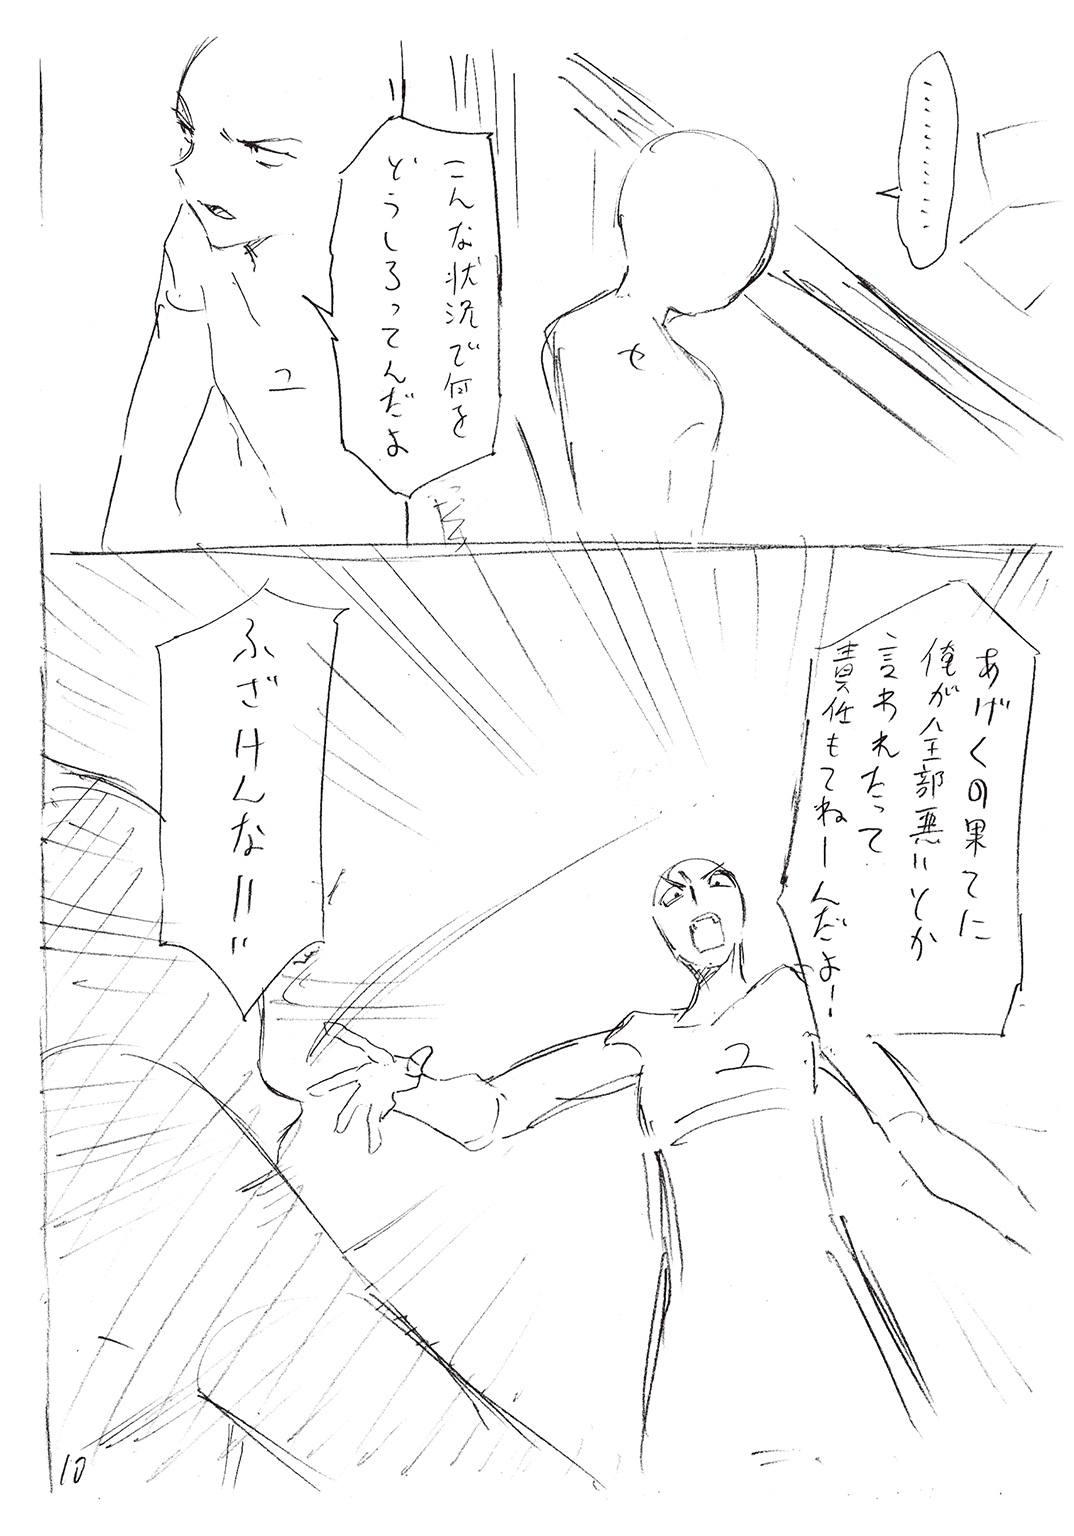 …………
セ
こんな状況で何を
どうしろってんだよ
ユ
あげくの果てに
俺が全部悪いとか
言われたって
責任もてねーんだよ!
ユ
ふざけんな!!
10